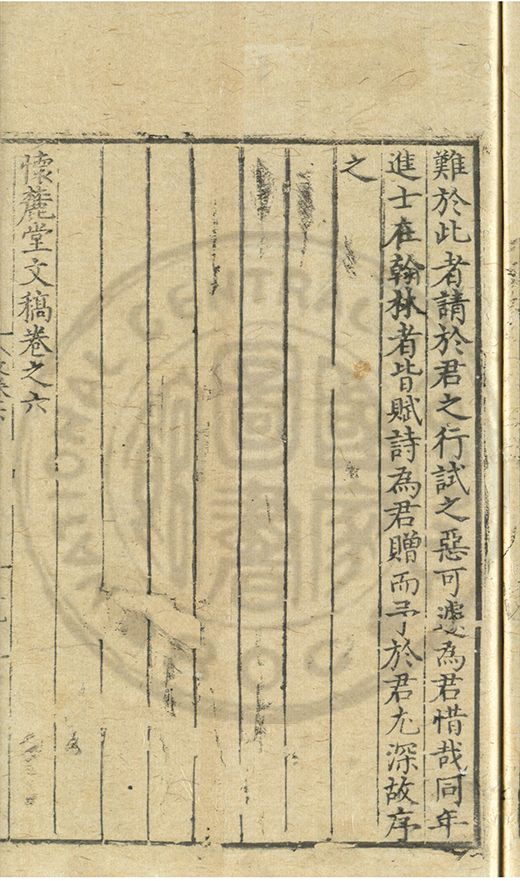 難於此者請於君之行試之惡可遽為君惜哉同年
進士在翰林者皆賦詩為君贈而予於君尤深故序
之
懷麓堂文稿卷之六